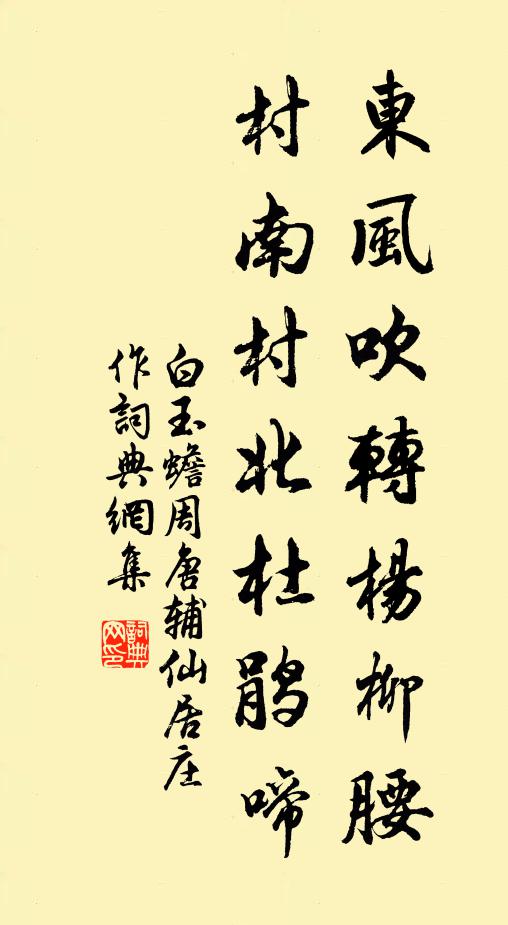 東風吹轉楊柳腰
村南村北杜鹃啼
白玉蟾周唐辅仙居庄
作詞典網集
詞典網印